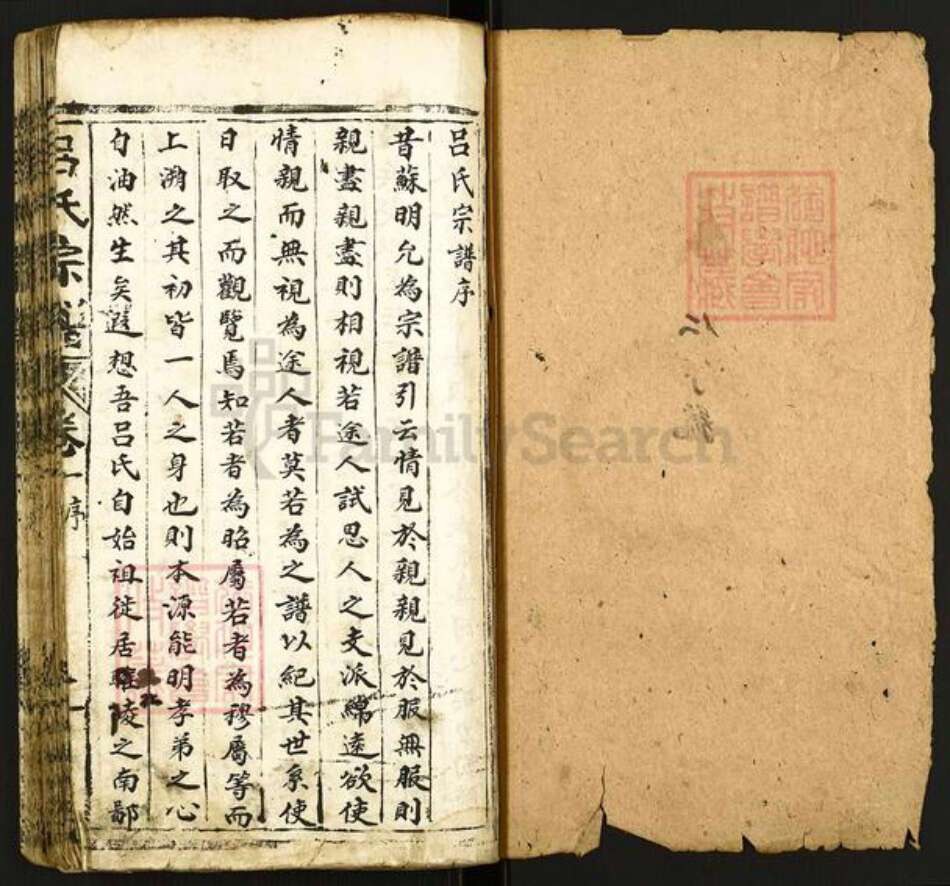 呂氏宗譜序
昔蘇明允為宗譜引云情見於親親見於服無服則
親盡親盡則相視若途人試思人之支派綿遠欲使
情親而無視為途人者莫若為之譜以紀其世系使
日取之而觀覽焉知若者為昭屬若者為穆屬等而
上溯之其初皆一人之身也則本源能明孝弟之心
自油然生矣遐想吾呂氏自始祖徙居陵之南鄙
呂氏宗譜
卷一
序
FamilySearch